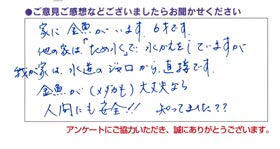 ●ご意見ご感想などございましたらお聞かせください
家に金魚がいます。6才です。
他の家は「ため水」で水かえをしていますが
我が家は、水道のジャ口から、直接です。
金魚が(メダカも)大丈夫なら
人間にも安全!! 知ってました??
アンケートにご協力いただき、誠にありがとうございます。